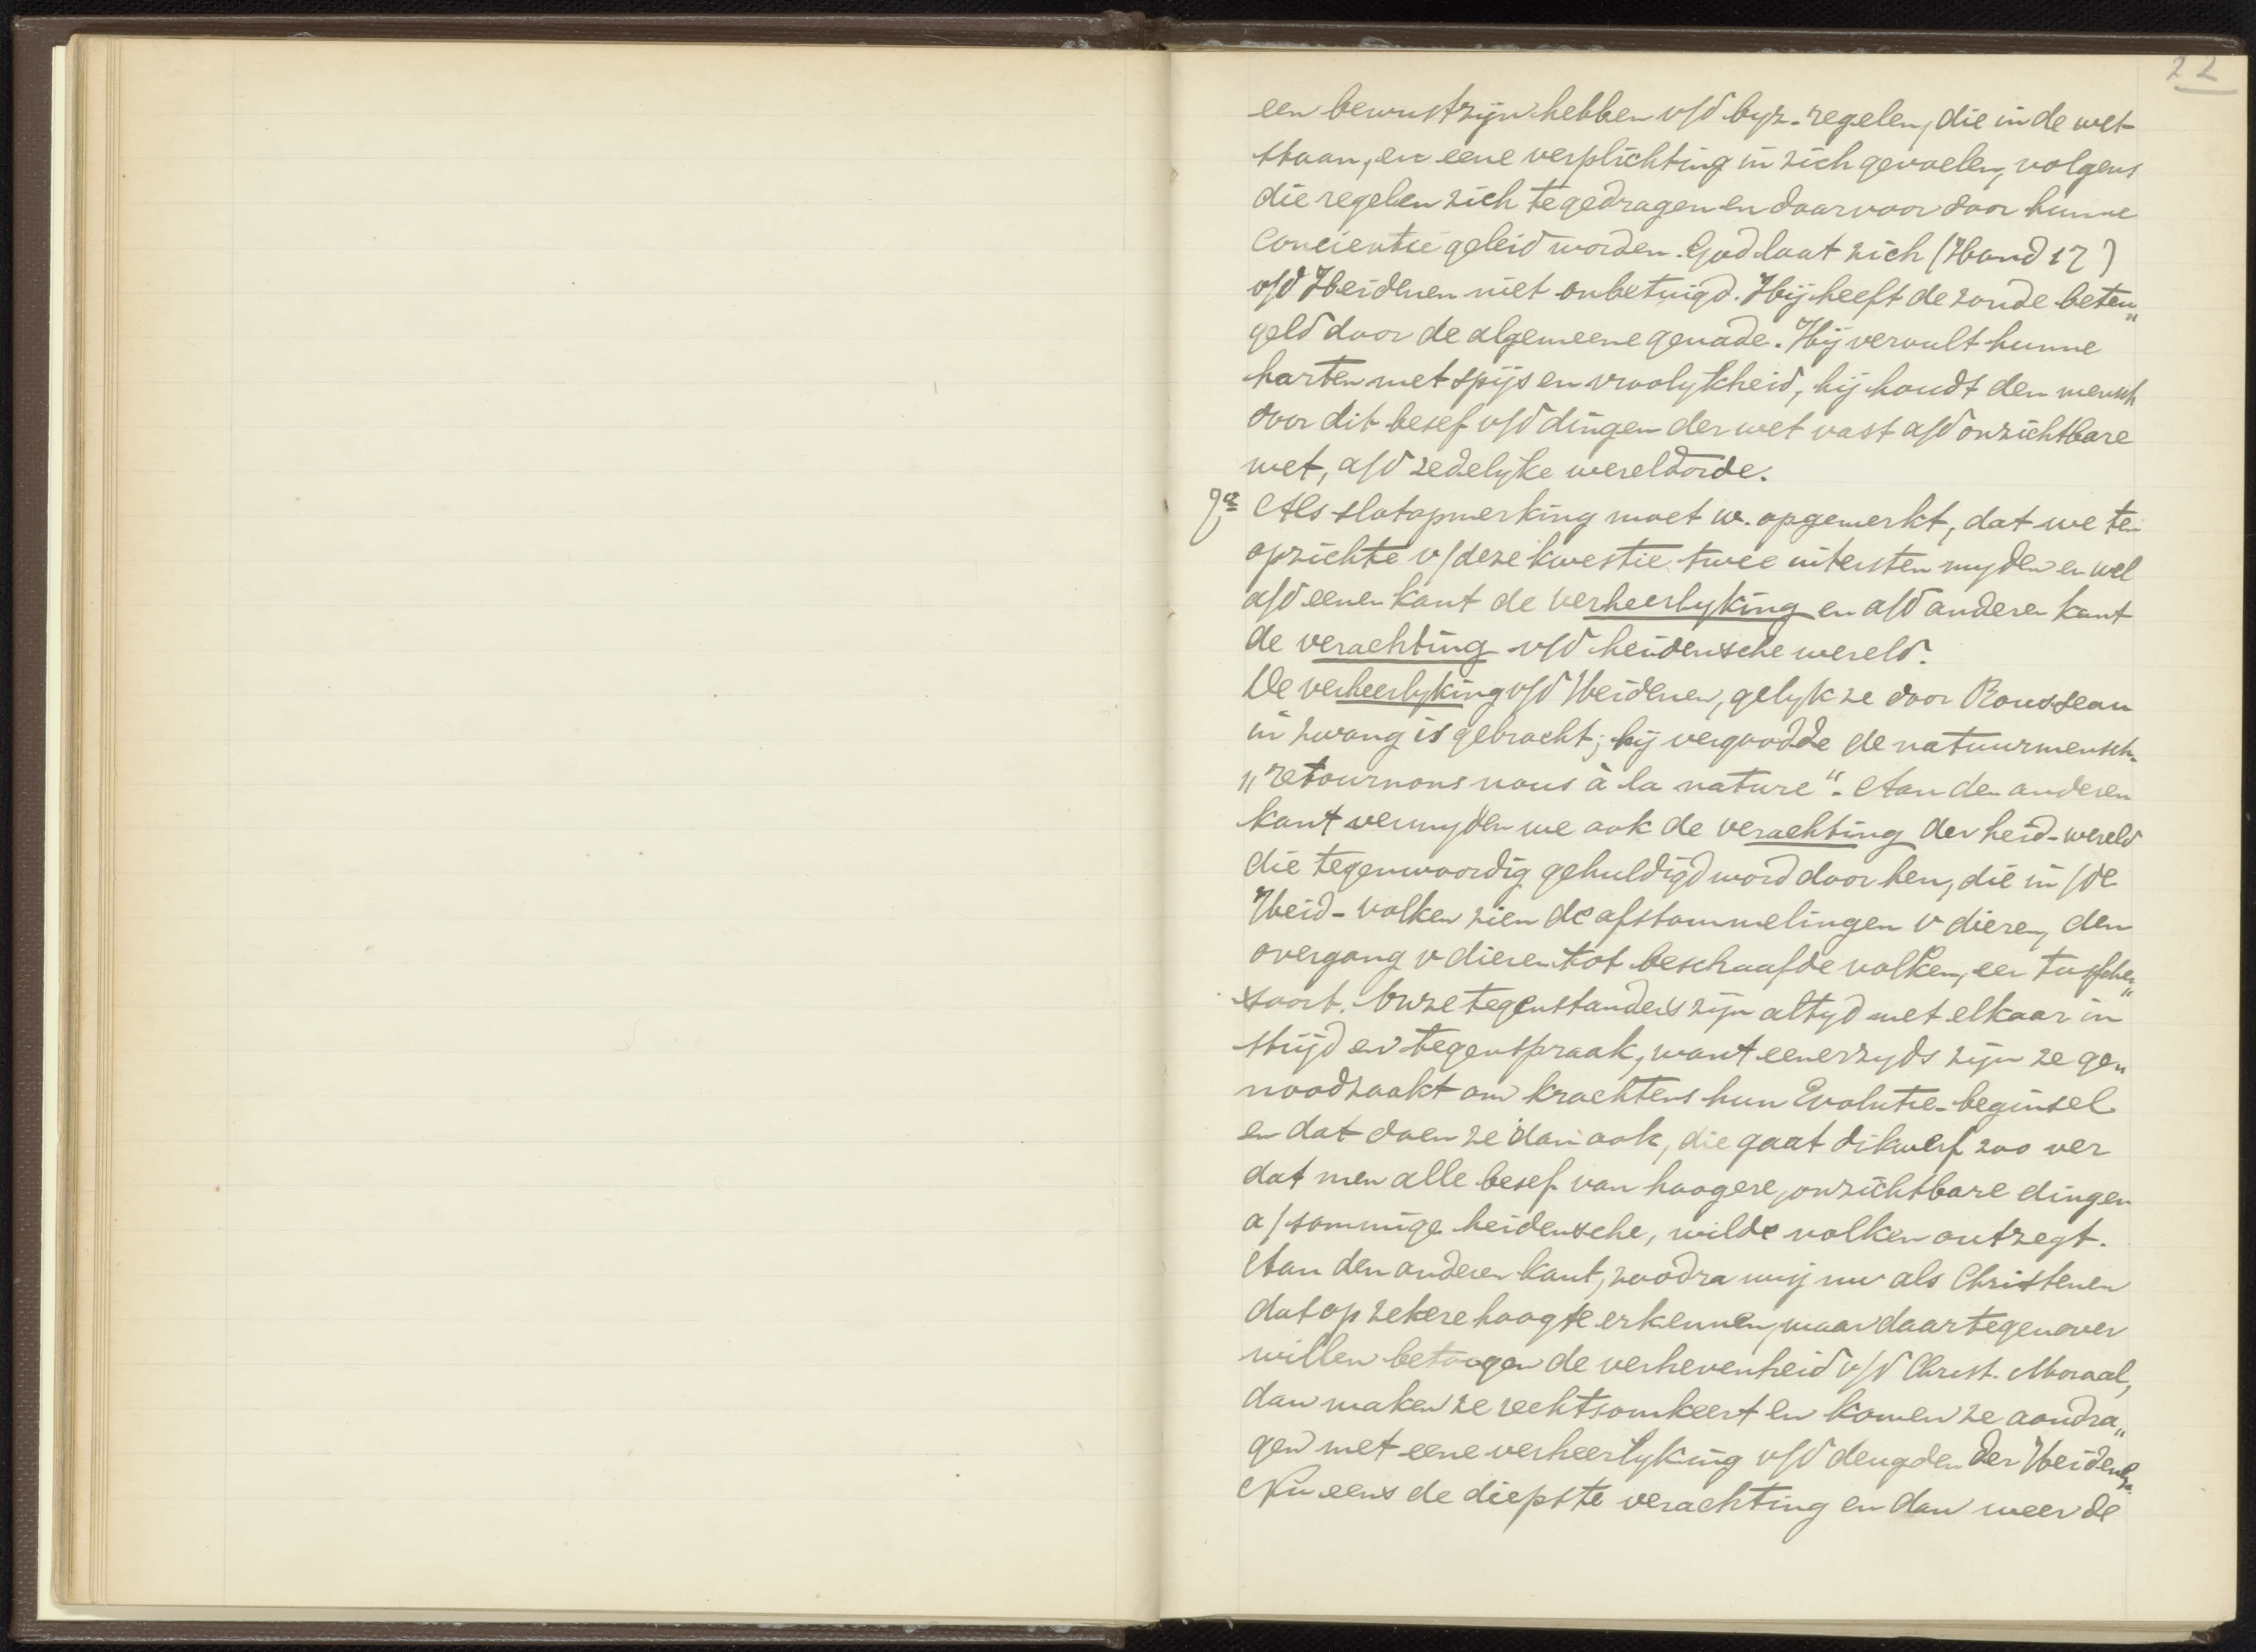 22
een bewustzijn hebben v/d byz. regelen, die in de wet
staan, en eene verplichting in zich gevoelen, volgens
die regelen zich te gedragen en daarvoor door hunne
Concientie geleid worden. God laat zich (Hand 17)
v/d Heidenen niet onbetuigd. Hij heeft de zonde beten„
geld door de algemeene genade. Hij vervult hunne
harten met spijs en vroolykheid, hij houdt den mensch
door dit besef v/d dingen der wet vast a/d onzichtbare
wet, a/d zedelyke wereldorde.
Als slotopmerking moet w. opgemerkt, dat we ten
opzichte v/deze kwestie twee uitersten myden en wel
a/d eenen kant de verheerlyking en a/d anderen kant
de verachting v/d heidensche wereld.
De verheerlyking v/d Heidenen, gelyk ze door Rousseau
in zwang is gebracht; hij vergoodde de natuurmensch.
„retournons nous à la nature“. Aan den anderen
kant vermyden we ook de verachting der heid-wereld
die tegenwoordig gehuldigd word door hen, die in /de
Heid-volken zien de afstammelingen v dieren, den
overgang v dieren tot beschaafde volken, een tusschen„
soort. Onze tegenstanders zijn altyd met elkaar in
strijd en tegenspraak, want eenerzyds zijn ze ge„
noodzaakt om krachtens hun Evolutie-beginsel
en dat doen ze dan ook, die gaat dikwerf zoo ver
dat men alle besef van hoogere, onzichtbare dingen
a/sommige heidensche, wilde volken ontzegt.
Aan den anderen kant, zoodra wij nu als Christenen
dat op zekere hoogte erkennen, maar daartegenover
willen betoogen de verhevenheid v/d Christ. Moraal,
dan maken ze rechtsomkeert en komen ze aandra„
gen met eene verheerlyking v/d deugden der Heidenen.
Nu eens de diepste verachting en dan weer de